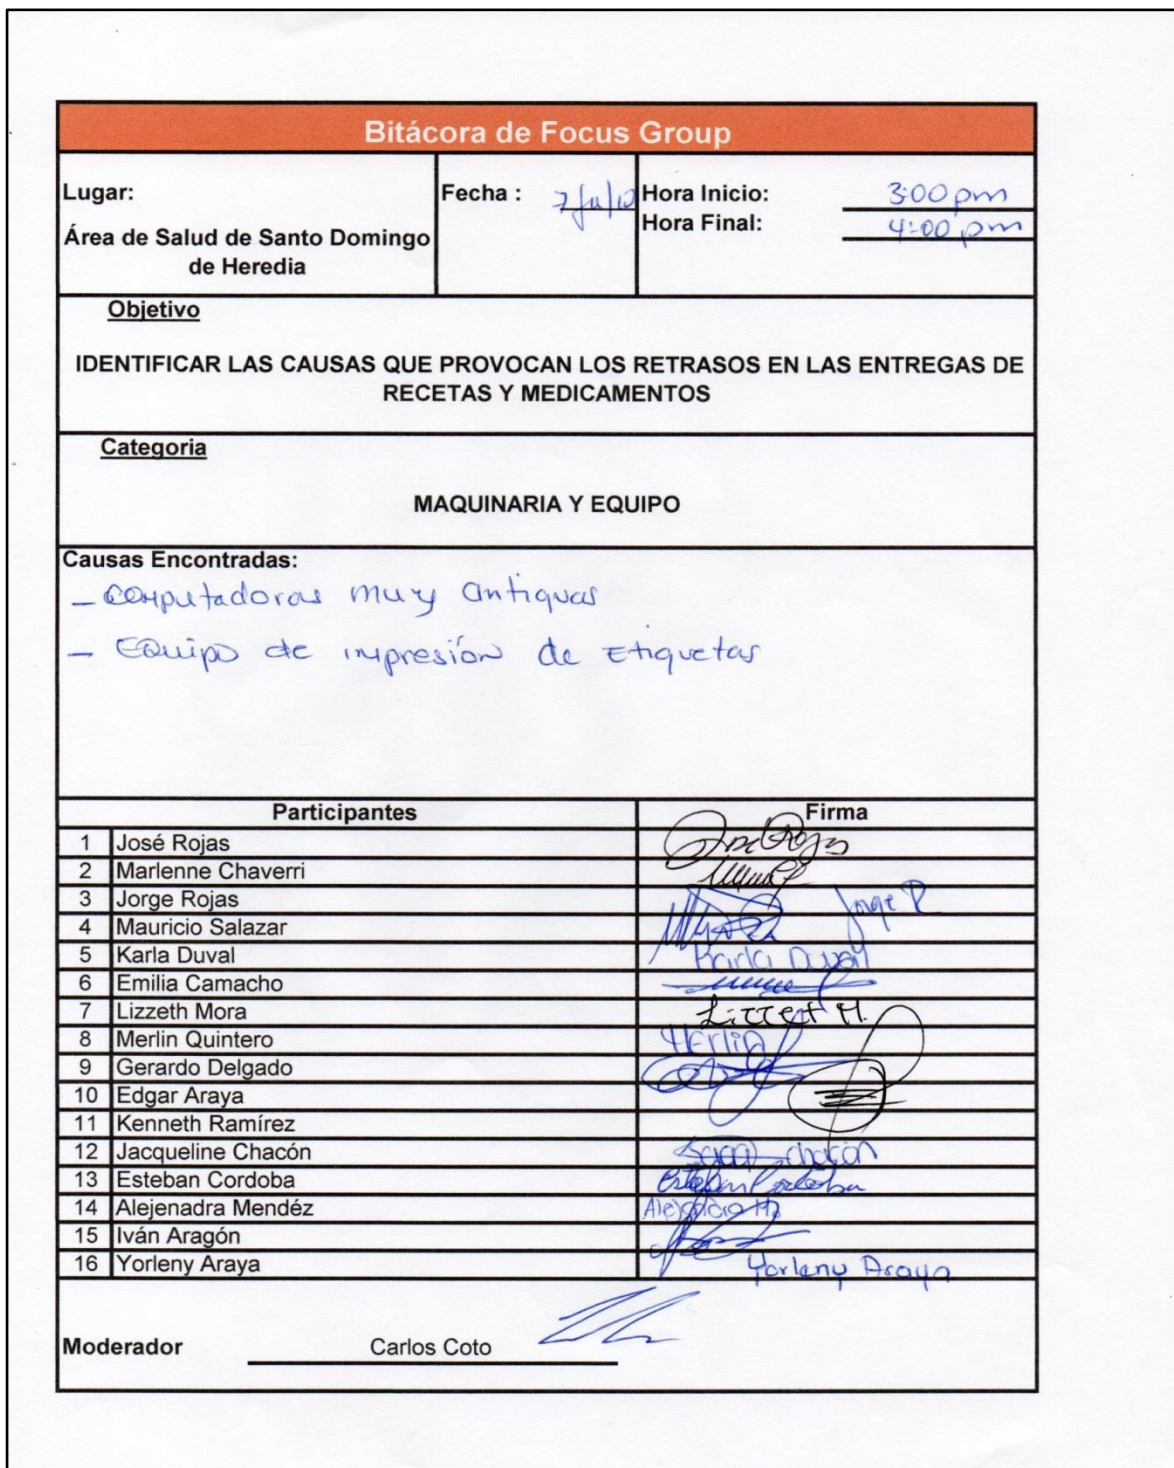 Bitácora de Focus Group
Lugar:
Área de Salud de Santo Domingo
de Heredia
Fecha :
Hora Inicio: 3:00 pm
Hora Final: 4:00 pm
Objetivo
IDENTIFICAR LAS CAUSAS QUE PROVOCAN LOS RETRASOS EN LAS ENTREGAS DE
RECETAS Y MEDICAMENTOS
Categoria
MAQUINARIA Y EQUIPO
Causas Encontradas:
- computadoras muy antiguas
- Equipo de impresión de Etiquetas
Participantes Firma
1 José Rojas
2 Marlenne Chaverri
3 Jorge Rojas Jorge R
4 Mauricio Salazar
5 Karla Duval Karla Duval
6 Emilia Camacho
7 Lizzeth Mora
8 Merlin Quintero Merlin
9 Gerardo Delgado
10 Edgar Araya
11 Kenneth Ramírez
12 Jacqueline Chacón chacón
13 Esteban Cordoba Esteban Cordoba
14 Alejenadra Mendéz
15 Iván Aragón
16 Yorleny Araya Yorleny Araya
Moderador Carlos Coto